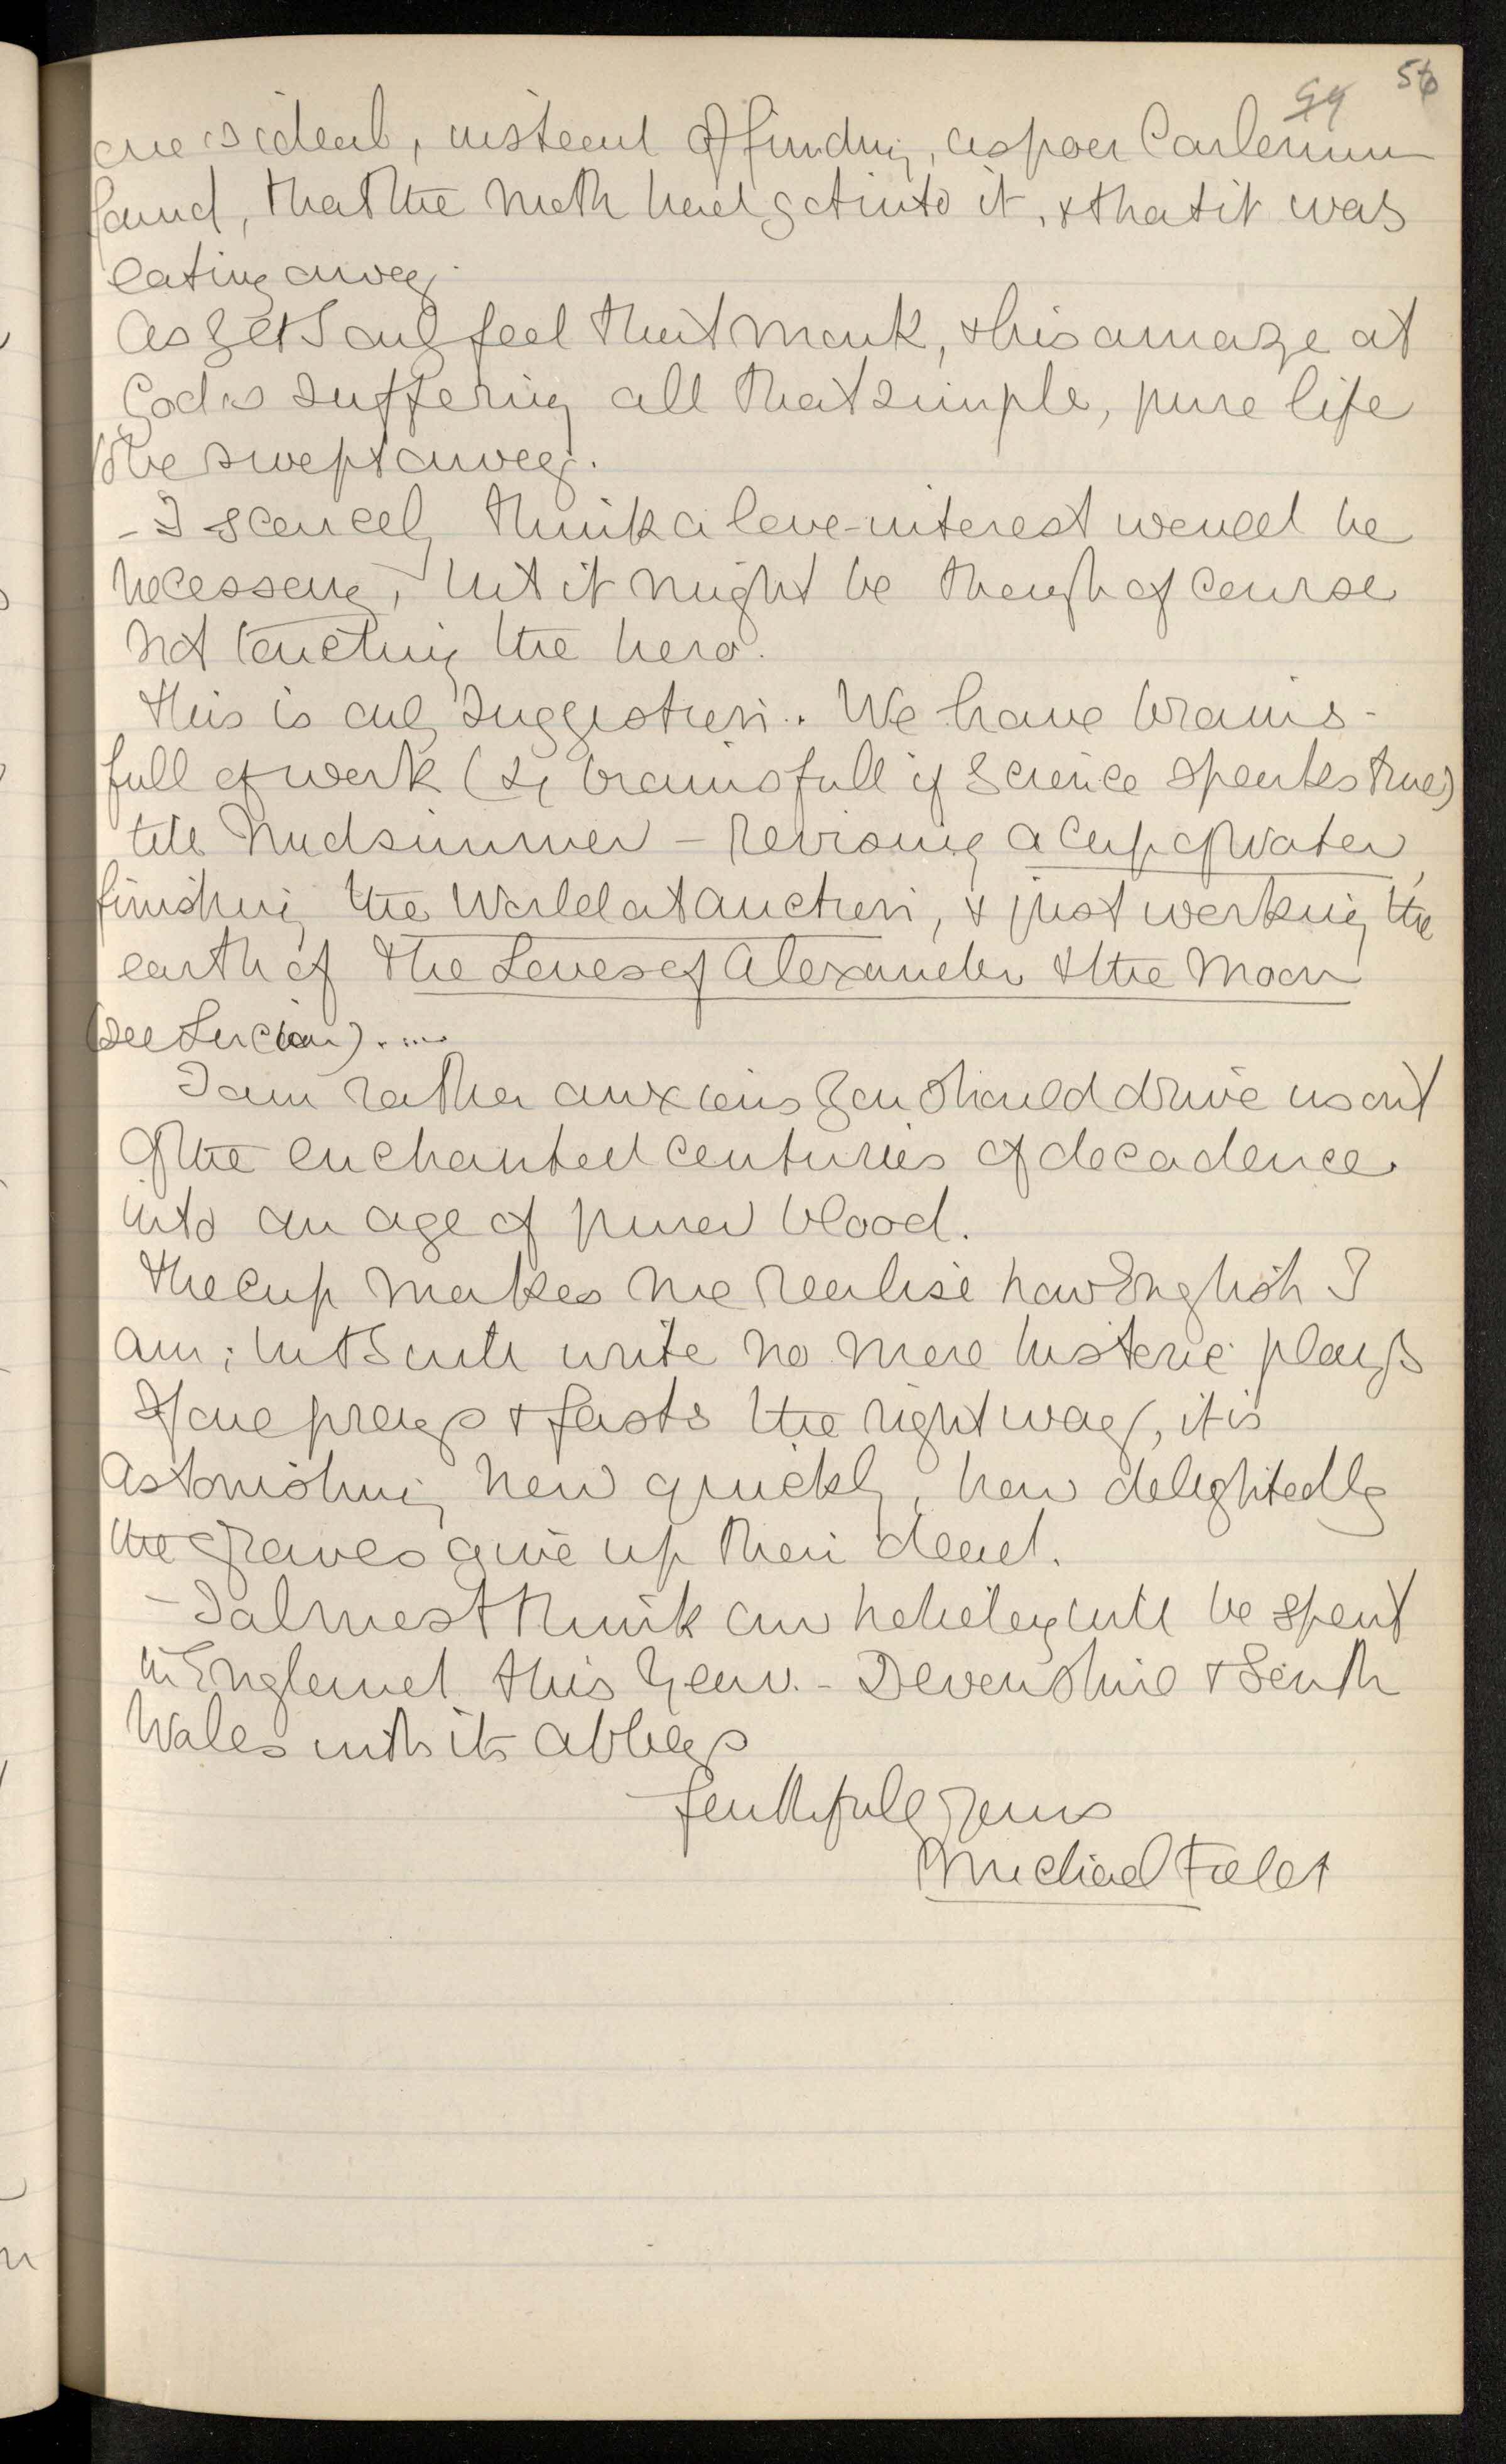 56
one's ideal, instead of finding, as poor
found, that the moth had got into it, & that it was
eating away.
As yet I only feel that monk, & his amaze at
God's suffering all that simple, pure life
to be swept away.
- I scarcely think a love-interest would be
necessary, but it might be though of course
not touching the hero.
This is only suggestion. We have brains-
full of work ( brainsfull if Science speaks true)
till Midsummer – revising A Cup of Water,
finishing the World at Auction, & just working the
earth of the Loves of Alexander & the Moon
(see Lucian)....
I am rather anxious you should drive us out
of the enchanted centuries of decadence
into an age of purer blood.
The Cup makes me realise how English I
am; but I will write no more historic plays
If one prays & fasts the right way, it is
astonishing how quickly, how delightedly
the graves give up their dead.
- I almost think our holiday will be spent
in England this year. - Devonshire & South
Wales with its abbeys
faithfully yours
Michael Field